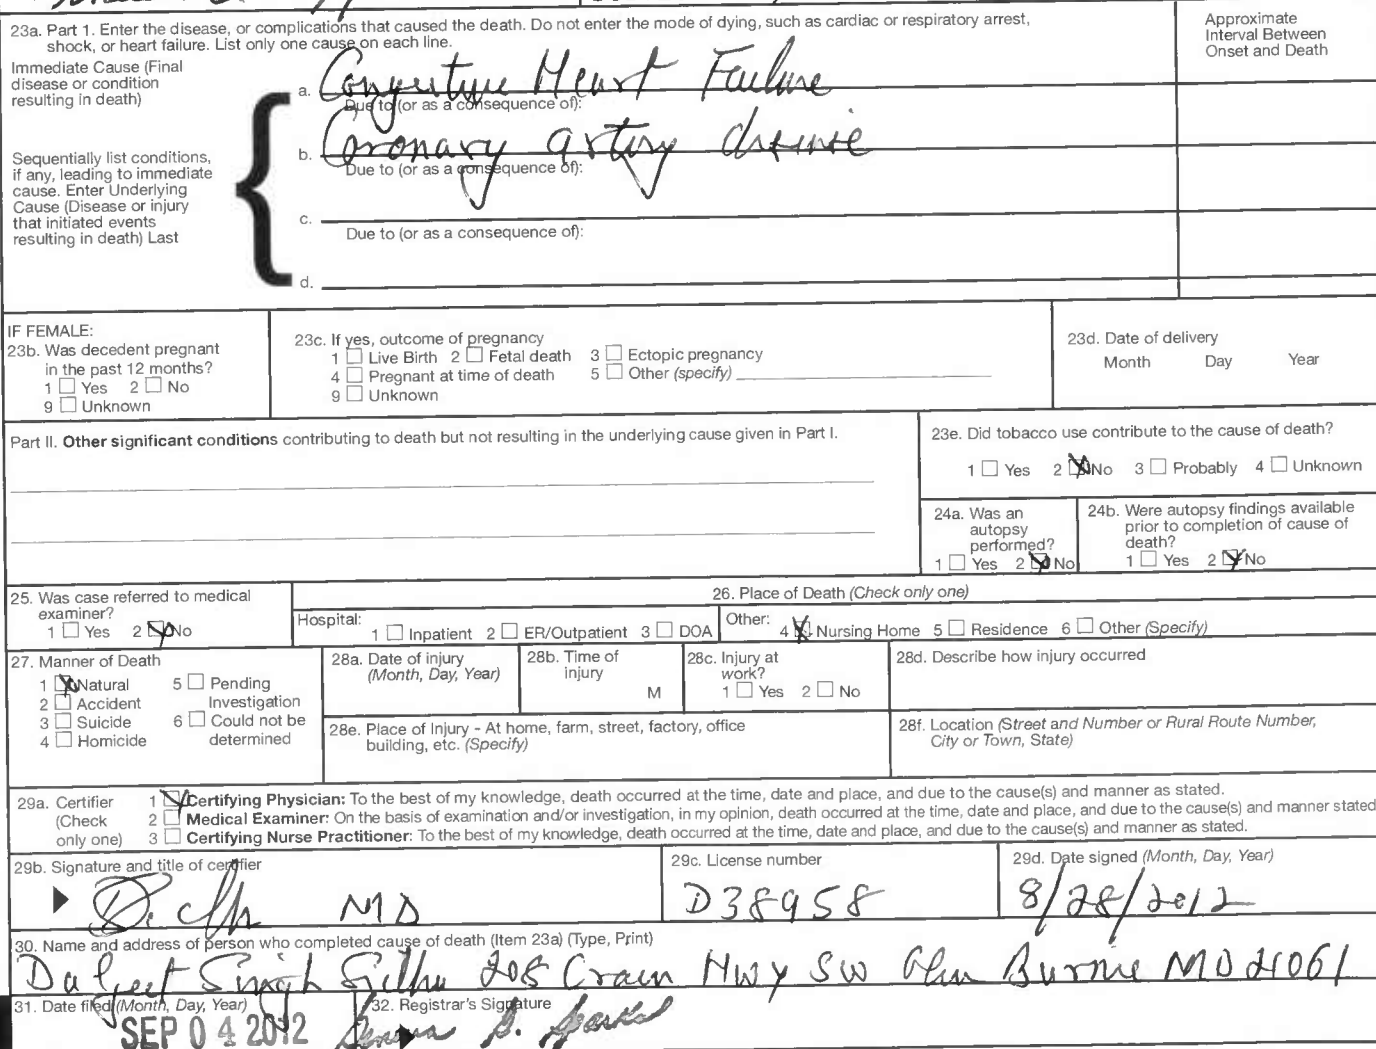 23a. Part 1. Enter the disease, or complications that caused the death. Do not enter the mode of dying, such as cardiac or respiratory arrest,
shock, or heart failure. List only one cause on each line.
Approximate
Interval Between
Onset and Death
Immediate Cause (Final
disease or condition
resulting in death)
a. Congestive Heart Failure
Due to (or as a consequence of):
b. Coronary artery disease
Due to (or as a consequence of):
Sequentially list conditions,
if any, leading to immediate
cause. Enter Underlying
Cause (Disease or injury
that initiated events
resulting in death) Last
c.
Due to (or as a consequence of):
d.
IF FEMALE:
23b. Was decedent pregnant
in the past 12 months?
1 ☐ Yes 2 ☐ No
9 ☐ Unknown
23c. If yes, outcome of pregnancy
1 ☐ Live Birth 2 ☐ Fetal death 3 ☐ Ectopic pregnancy
4 ☐ Pregnant at time of death 5 ☐ Other (specify)
9 ☐ Unknown
23d. Date of delivery
Month Day Year
Part II. Other significant conditions contributing to death but not resulting in the underlying cause given in Part I.
23e. Did tobacco use contribute to the cause of death?
1 ☐ Yes 2 ☒ No 3 ☐ Probably 4 ☐ Unknown
24a. Was an
autopsy
performed?
1 ☐ Yes 2 ☒ No
24b. Were autopsy findings available
prior to completion of cause of
death?
1 ☐ Yes 2 ☒ No
25. Was case referred to medical
examiner?
1 ☐ Yes 2 ☒ No
26. Place of Death (Check only one)
Hospital: 1 ☐ Inpatient 2 ☐ ER/Outpatient 3 ☐ DOA
Other: 4 ☒ Nursing Home 5 ☐ Residence 6 ☐ Other (Specify)
27. Manner of Death
1 ☒ Natural 5 ☐ Pending
2 ☐ Accident Investigation
3 ☐ Suicide 6 ☐ Could not be
4 ☐ Homicide determined
28a. Date of injury
(Month, Day, Year)
28b. Time of
injury
M
28c. Injury at
work?
1 ☐ Yes 2 ☐ No
28d. Describe how injury occurred
28e. Place of Injury - At home, farm, street, factory, office
building, etc. (Specify)
28f. Location (Street and Number or Rural Route Number,
City or Town, State)
29a. Certifier
(Check
only one)
1 ☒ Certifying Physician: To the best of my knowledge, death occurred at the time, date and place, and due to the cause(s) and manner as stated.
2 ☐ Medical Examiner: On the basis of examination and/or investigation, in my opinion, death occurred at the time, date and place, and due to the cause(s) and manner stated
3 ☐ Certifying Nurse Practitioner: To the best of my knowledge, death occurred at the time, date and place, and due to the cause(s) and manner as stated.
29b. Signature and title of certifier
MD
29c. License number
D38958
29d. Date signed (Month, Day, Year)
8/28/2012
30. Name and address of person who completed cause of death (Item 23a) (Type, Print)
Daljeet Singh Sidhu 208 Crain Hwy SW Glen Burnie MD 21061
31. Date filed (Month, Day, Year)
SEP 04 2012
32. Registrar's Signature